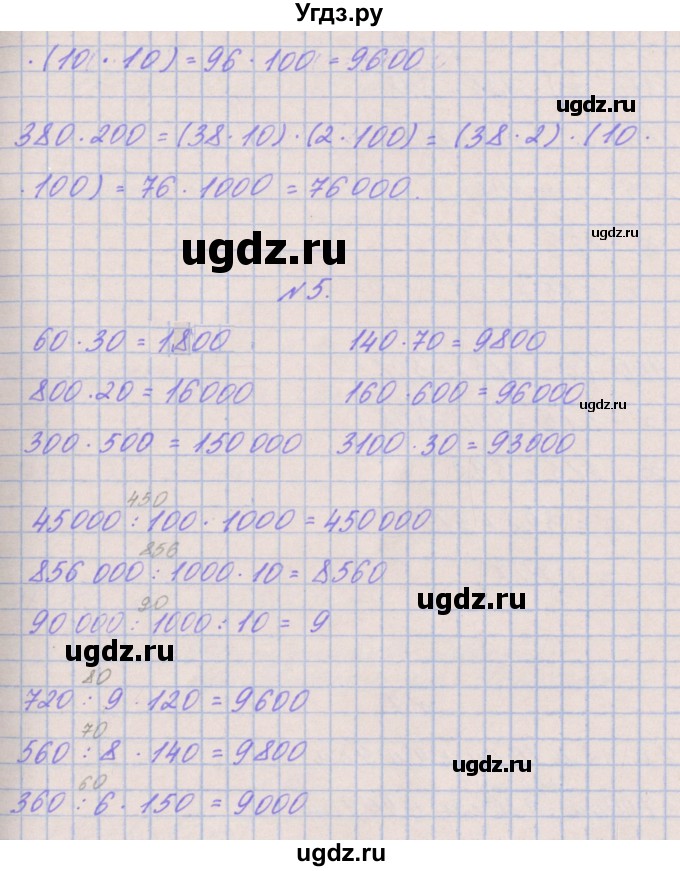 Угдз.ру
· (10 · 10) = 96 · 100 = 9600
ugdz.ru
380 · 200 = (38 · 10) · (2 · 100) = (38 · 2) · (10 ·
· 100) = 76 · 1000 = 76000.
ugdz.ru
ugdz.ru
N 5.
60 · 30 = 1800 140 · 70 = 9800
800 · 20 = 16000 160 · 600 = 96000
ugdz.ru
300 · 500 = 150 000 3100 · 30 = 93000
450
45000 : 100 · 1000 = 450 000
856
856 000 : 1000 · 10 = 8560
ugdz.ru
90
90 000 : 1000 : 10 = 9
ugdz.ru
80
720 : 9 · 120 = 9600
70
560 : 8 · 140 = 9800
ugdz.ru
60
360 : 6 · 150 = 9000
ugdz.ru